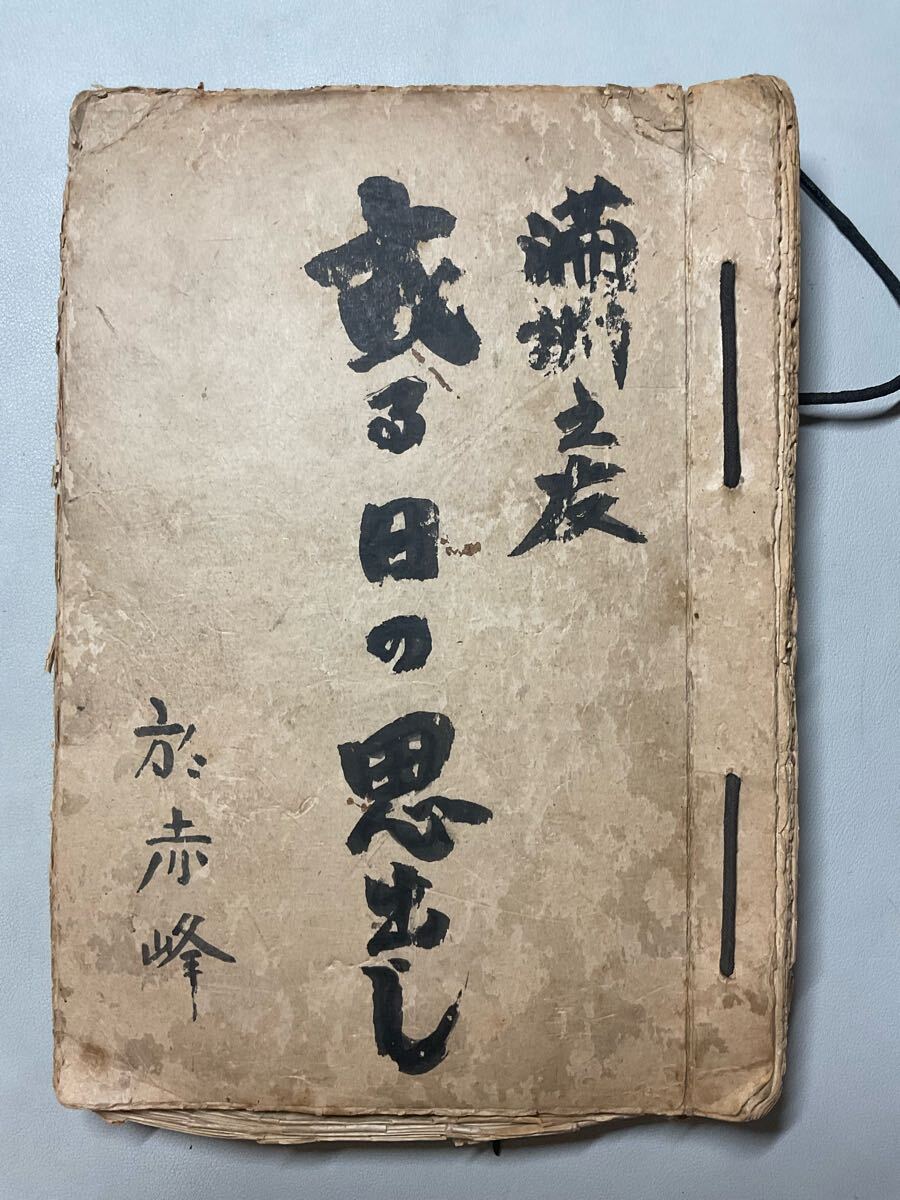 満洲之友
或る日の思出し
於赤峰